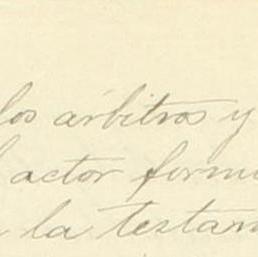 los arbitros y
actor form
la testam